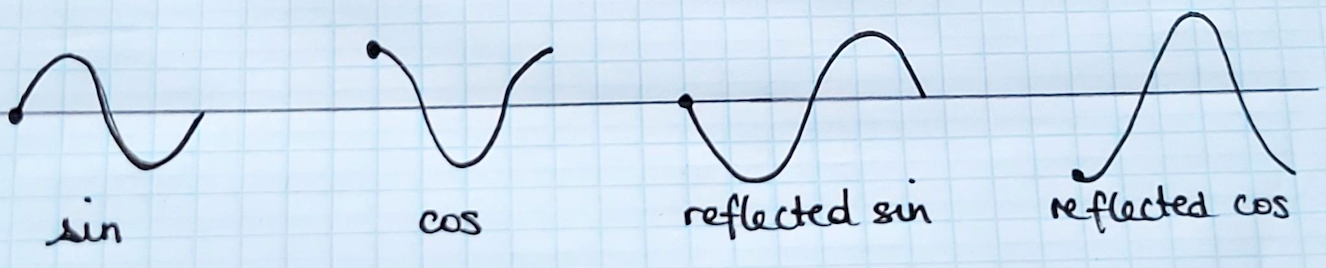 sin cos reflected sin reflected cos